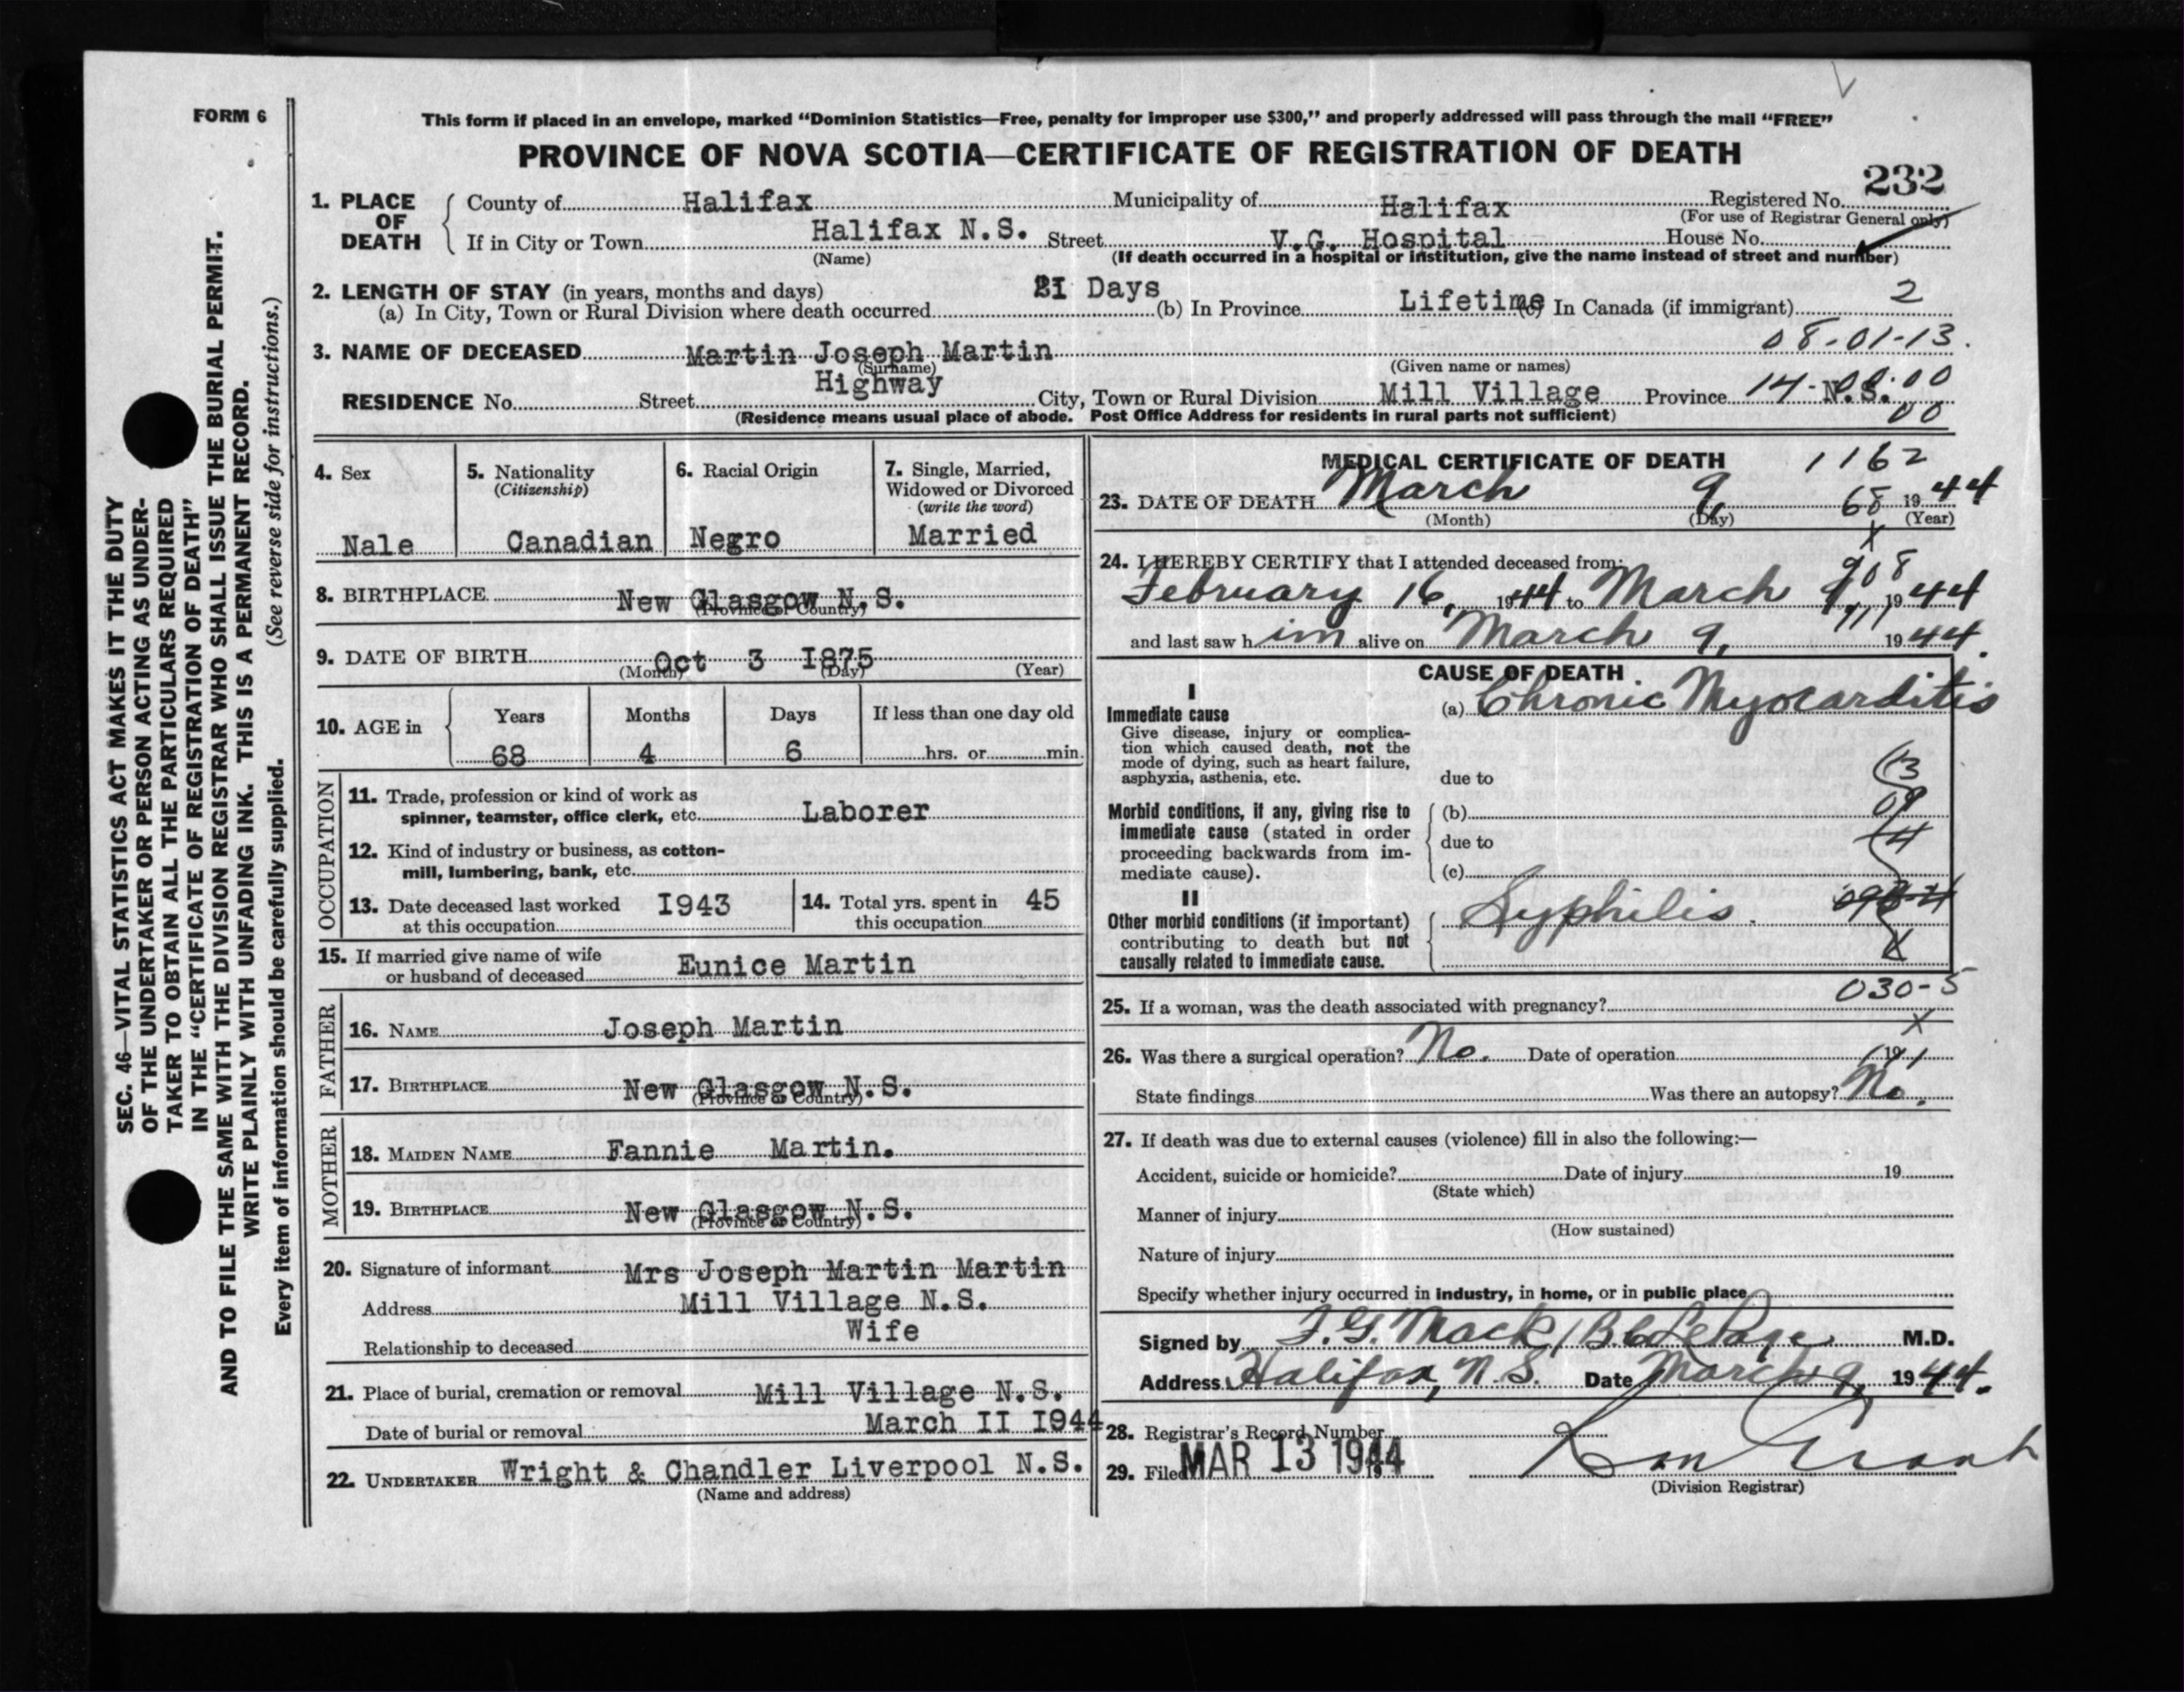 FORM 6
This form if placed in an envelope, marked “Dominion Statistics—Free, penalty for improper use $300,” and properly addressed will pass through the mail “FREE”
PROVINCE OF NOVA SCOTIA—CERTIFICATE OF REGISTRATION OF DEATH
232
1. PLACE OF DEATH County of Halifax Municipality of Halifax Registered No.
(For use of Registrar General only)
If in City or Town Halifax N.S. Street V.G. Hospital House No.
(Name) (If death occurred in a hospital or institution, give the name instead of street and number)
2. LENGTH OF STAY (in years, months and days)
(a) In City, Town or Rural Division where death occurred 21 Days (b) In Province Lifetime (c) In Canada (if immigrant) 2
08-01-13.
3. NAME OF DECEASED Martin Joseph Martin
(Surname) (Given name or names)
RESIDENCE No. Street Highway City, Town or Rural Division Mill Village Province N.S. 14-00.00
00
(Residence means usual place of abode. Post Office Address for residents in rural parts not sufficient)
SEC. 46—VITAL STATISTICS ACT MAKES IT THE DUTY
OF THE UNDERTAKER OR PERSON ACTING AS UNDER-
TAKER TO OBTAIN ALL THE PARTICULARS REQUIRED
IN THE “CERTIFICATE OF REGISTRATION OF DEATH”
AND TO FILE THE SAME WITH THE DIVISION REGISTRAR WHO SHALL ISSUE THE BURIAL PERMIT.
WRITE PLAINLY WITH UNFADING INK. THIS IS A PERMANENT RECORD.
Every item of information should be carefully supplied. (See reverse side for instructions.)
4. Sex
Nale
5. Nationality
(Citizenship)
Canadian
6. Racial Origin
Negro
7. Single, Married,
Widowed or Divorced
(write the word)
Married
8. BIRTHPLACE New Glasgow N.S.
(Province or Country)
9. DATE OF BIRTH Oct 3 I875
(Month) (Day) (Year)
10. AGE in Years Months Days If less than one day old
68 4 6 hrs. or min.
OCCUPATION
11. Trade, profession or kind of work as
spinner, teamster, office clerk, etc. Laborer
12. Kind of industry or business, as cotton-
mill, lumbering, bank, etc.
13. Date deceased last worked
at this occupation I943
14. Total yrs. spent in
this occupation 45
15. If married give name of wife
or husband of deceased Eunice Martin
FATHER
16. NAME Joseph Martin
17. BIRTHPLACE New Glasgow N.S.
(Province or Country)
MOTHER
18. MAIDEN NAME Fannie Martin.
19. BIRTHPLACE New Glasgow N.S.
(Province or Country)
20. Signature of informant Mrs Joseph Martin Martin
Address Mill Village N.S.
Relationship to deceased Wife
21. Place of burial, cremation or removal Mill Village N.S.
Date of burial or removal March II I944
22. UNDERTAKER Wright & Chandler Liverpool N.S.
(Name and address)
MEDICAL CERTIFICATE OF DEATH 1162
23. DATE OF DEATH March 9, 68 1944
(Month) (Day) (Year)
x
24. I HEREBY CERTIFY that I attended deceased from:
908
February 16, 1944 to March 9, 1944
111
and last saw him alive on March 9, 1944.
CAUSE OF DEATH
I
Immediate cause
Give disease, injury or complica-
tion which caused death, not the
mode of dying, such as heart failure,
asphyxia, asthenia, etc.
(a) Chronic Myocarditis
due to
Morbid conditions, if any, giving rise to
immediate cause (stated in order
proceeding backwards from im-
mediate cause).
(b)
due to
(c)
13
09
II
Other morbid conditions (if important)
contributing to death but not
causally related to immediate cause.
Syphilis.
030-5
25. If a woman, was the death associated with pregnancy?
x
26. Was there a surgical operation? No. Date of operation 19
State findings Was there an autopsy? No.
27. If death was due to external causes (violence) fill in also the following:—
Accident, suicide or homicide? Date of injury 19
(State which)
Manner of injury
(How sustained)
Nature of injury
Specify whether injury occurred in industry, in home, or in public place
Signed by F.G. Mack / B.C. LePage M.D.
Address Halifax, N.S. Date March 9, 1944.
28. Registrar's Record Number
29. Filed MAR 13 1944
(Division Registrar)